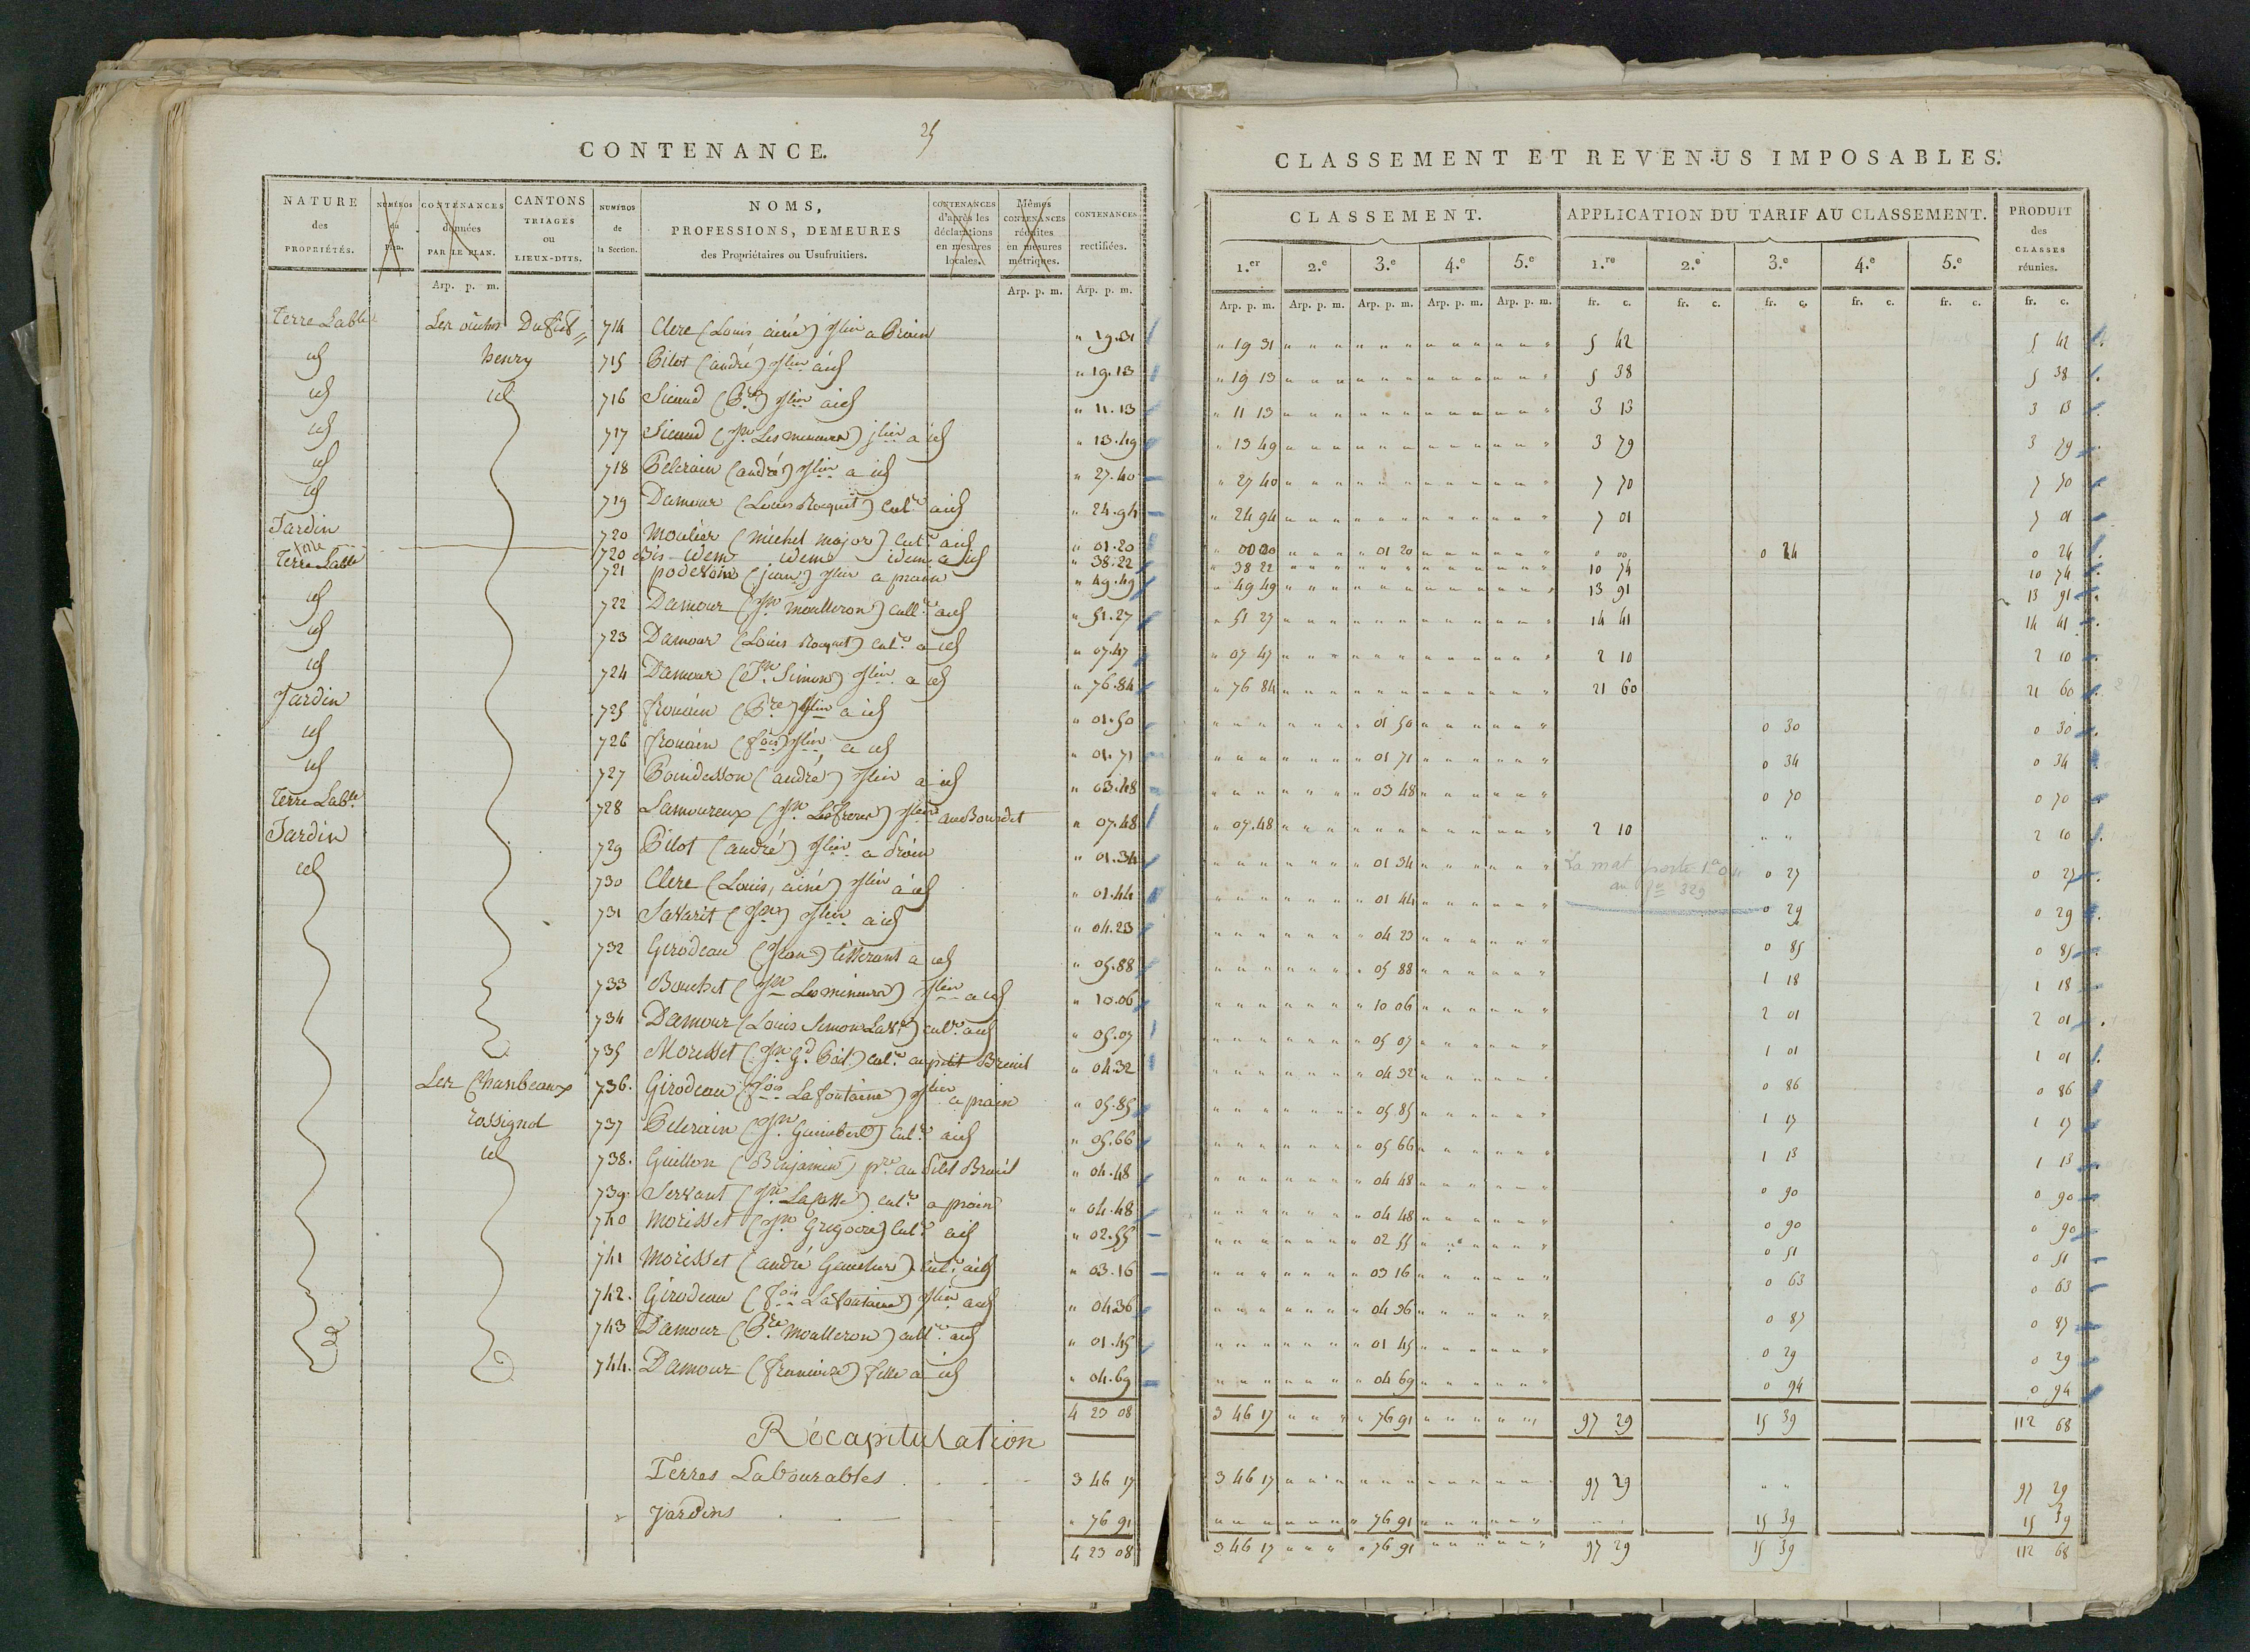 25
CONTENANCE.
NATURE des PROPRIÉTÉS.
NUMÉROS du plan.
CONTENANCES données PAR LE PLAN.
CANTONS TRIAGES ou LIEUX-DITS.
NUMÉROS de la Section.
NOMS, PROFESSIONS, DEMEURES des Propriétaires ou Usufruitiers.
CONTENANCES d'après les déclarations en mesures locales.
Mêmes CONTENANCES réduites en mesures métriques.
CONTENANCES rectifiées.
Arp. p. m. Arp. p. m. Arp. p. m.
Terre Lable Les ouches Du fief 714 Clere (Louis ainé) Jlier a Proin " 19.31
id henry 715 Pilot (andré) Jlier a id " 19.13
id id 716 Sicaud (Pre) Jlier a id " 11.13
id 717 Sicaud (Jn Les mineurs) jlier a id " 13.49
id 718 Pelerain (andré) Jlier a id " 27.40
id 719 Damour (Louis Rocquet) cultr a id " 24.94
Jardin 720 Moulier (michel major) cultr a id " 01.20
terre 720 bis idem idem idem a id " 38.22
Terre Lable 721 podevoin (jean) Jlier a proin " 49.49
id 722 Damour (Jn moulleron) cultr a id " 51.27
id 723 Damour (Louis Rocquet) cultr a id " 07.47
id 724 Damour (Jn Simon) Jlier a id " 76.84
Jardin 725 frouin (Pre) Jlier a id " 01.50
id 726 frouin (fois) Jlier a id " 01.71
id 727 Boindesson (andré) Jlier a id " 03.48
Terre Lable 728 Lamoureux (Jn) Jlier au Bourdet " 07.48
Jardin 729 Pilot (andré) Jlier a Proin " 01.34
id 730 Clere (Louis, ainé) Jlier a id " 01.44
731 Savarit (Jn) Jlier a id " 04.23
732 Girodeau (Jean) tisserant a id " 05.88
733 Bouchet (Jn Les mineurs) Jlier a id " 10.06
734 Damour (Louis Simon) cultr a id " 05.07
735 Morisset (Jn) cultr au petit Breuil " 04.32
Les Chanbeaux 736. Girodeau (fois Lafontaine) Jlier a proin " 05.85
rossignol 737 Pelerain (Jn Guimbert) cultr a id " 05.66
id 738. Guillon (Benjamin) pre au Petit Breuil " 04.48
739 Servant (Jn Lafosse) cultr a proin " 04.48
740 Morisset (Jn Gregoire) cultr a id " 02.55
741 Morisset (andré Gautier) cultr a id " 03.16
742. Girodeau (fois Lafontaine) Jlier a id " 04.36
743 Damour (Pre Moulleron) cultr a id " 01.45
744. Damour (francoise) fille a id " 04.69
4 23 08
Récapitulation
Terres Labourables 3 46 17
Jardins " 76 91
4 23 08
CLASSEMENT ET REVENUS IMPOSABLES.
CLASSEMENT. APPLICATION DU TARIF AU CLASSEMENT. PRODUIT des CLASSES réunies.
1.er 2.e 3.e 4.e 5.e 1.re 2.e 3.e 4.e 5.e
Arp. p. m. Arp. p. m. Arp. p. m. Arp. p. m. Arp. p. m. fr. c. fr. c. fr. c. fr. c. fr. c. fr. c.
" 19 31 5 42 5 42
" 19 13 5 38 5 38
" 11 13 3 13 3 13
" 13 49 3 79 3 79
" 27 40 7 70 7 70
" 24 94 7 01 7 01
" 00 00 01 20 0 00 0 24 0 24
" 38 22 10 74 10 74
" 49 49 13 91 13 91
" 51 27 14 41 14 41
" 07 47 2 10 2 10
" 76 84 21 60 21 60
01 50 0 30 0 30
01 71 0 34 0 34
03 48 0 70 0 70
" 07.48 2 10 " " 2 10
01 34 0 27 0 27
La mat porte 1a 04
au No 329
01 44 0 29 0 29
04 23 0 85 0 85
05 88 1 18 1 18
10 06 2 01 2 01
05 07 1 01 1 01
04 32 0 86 0 86
05 85 1 17 1 17
05 66 1 13 1 13
04 48 0 90 0 90
04 48 0 90 0 90
02 55 0 51 0 51
03 16 0 63 0 63
04 36 0 87 0 87
01 45 0 29 0 29
04 69 0 94 0 94
3 46 17 " 76 91 97 29 15 39 112 68
3 46 17 97 29 " " 97 29
" 76 91 15 39 15 39
3 46 17 " 76 91 97 29 15 39 112 68